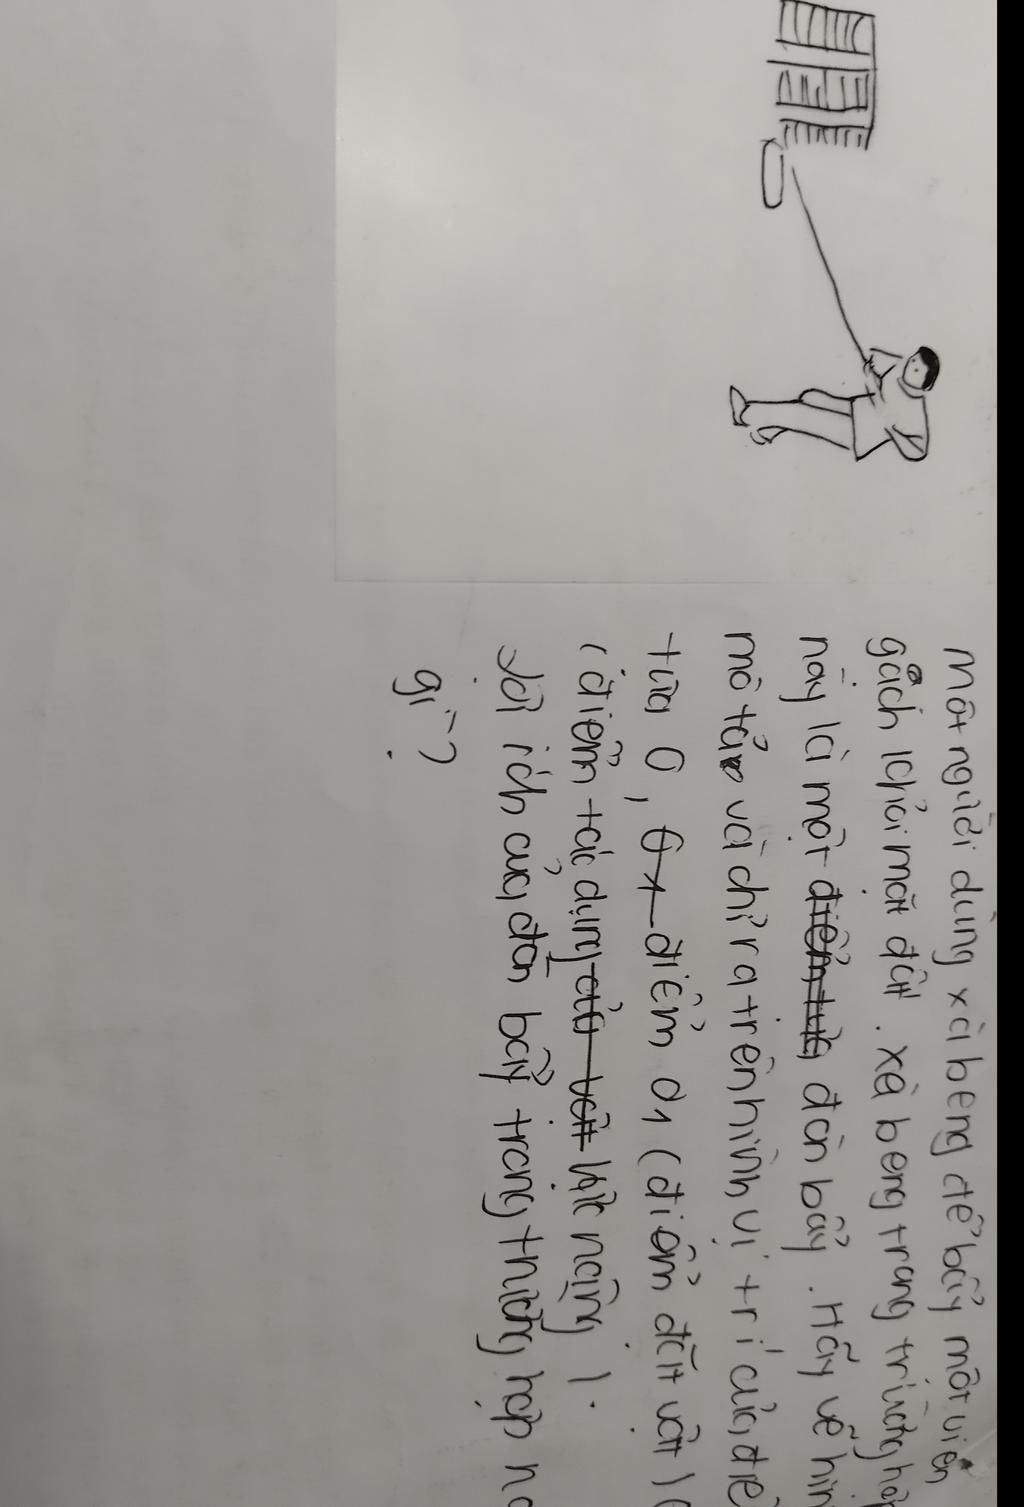 Một người dùng xà beng để bẩy một viên
gạch khỏi mặt đất. xà beng trong trường
này là một điểm tựa đòn bẩy. Hãy vẽ
mô tả và chỉ ra trên hình vị trí của
tựa O, O1 điểm O1 (điểm đặt vật
(điểm tác dụng của vật lực nâng).
Lợi ích của đòn bẩy trong trường hợp
gì?